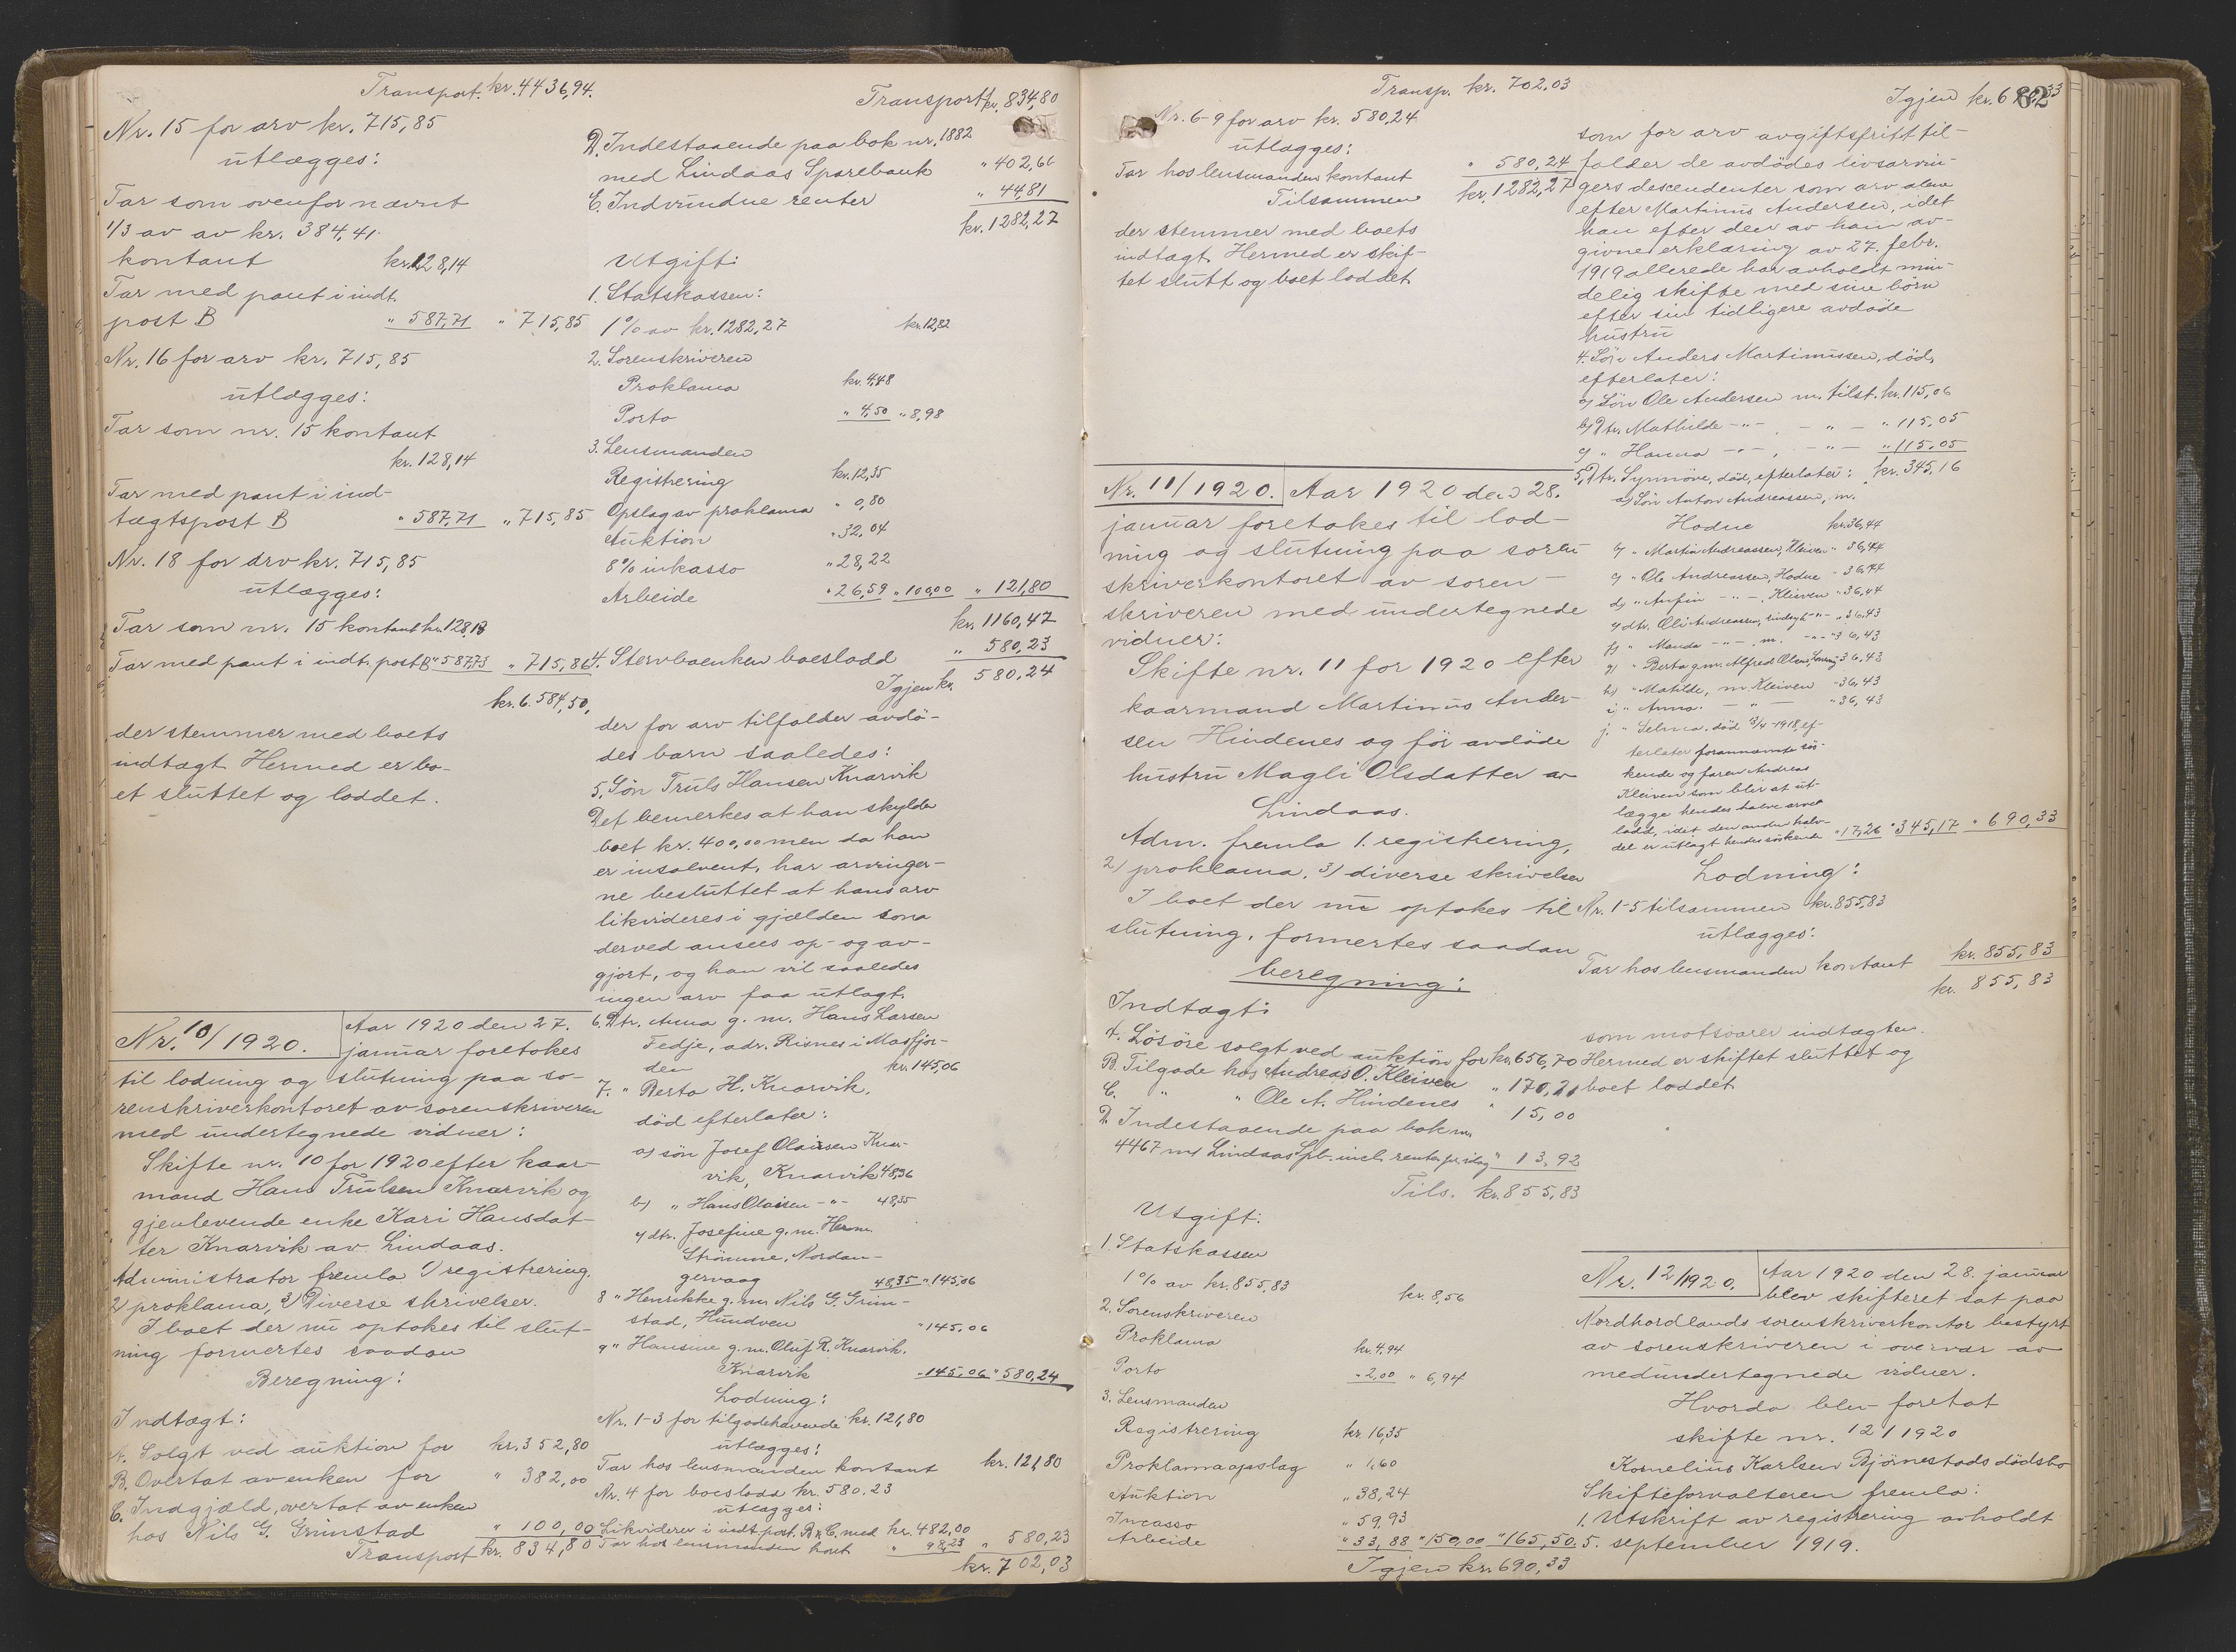 Transport. kr. 4436,94.
Nr. 15 for arv kr. 715,85
utlægges:
Tar som ovenfor nævnt
1/3 av av kr. 384,41.
kontant kr. 128,14
Tar med pant i indt.
post B " 587,71 " 715,85
Nr. 16 for arv kr. 715,85
utlægges:
Tar som nr. 15 kontant
kr. 128,14
Tar med pant i ind-
tægtspost B " 587,71 " 715,85
Nr. 18 for arv kr. 715,85
utlægges:
Tar som nr. 15 kontant kr. 128,13
Tar med pant i indt. post B " 587,73 " 715,86
kr. 6.584,50,
der stemmer med boets
indtægt. Hermed er bo-
et sluttet og loddet.
Nr. 10/1920. Aar 1920 den 27.
januar foretokes
til lodning og slutning paa so-
renskriverkontoret av sorenskriveren
med undertegnede vidner:
Skifte nr. 10 for 1920 efter kaar-
mand Hans Trulsen Knarvik og
gjenlevende enke Kari Hansdat-
ter Knarvik av Lindaas.
Administrator fremla 1) registrering,
2) proklama, 3) Diverse skrivelser.
I boet der nu optokes til slut-
ning formertes saadan
Beregning:
Indtægt:
A. Solgt ved auktion for kr. 352,80
B. Overtat av enken for " 382,00
C. Indgjæld, overtat av enken
hos Nils G. Grimstad " 100,00
Transport kr. 834,80
Transport kr. 834,80
D. Indestaaende paa bok nr. 1882
med Lindaas Sparebank " 402,66
E. Indvundne renter " 44,81
kr. 1282,27
Utgift:
1. Statskassen:
1% av kr. 1282,27 kr. 12,82
2. Sorenskriveren
Proklama kr. 4,48
Porto " 4,50 " 8,98
3. Lensmanden
Registrering kr. 12,35
Opslag av proklama " 0,80
Auktion " 32,04
8% inkasso " 28,22
Arbeide " 26,59 " 100,00 " 121,80
kr. 1160,47
4. Stervboenken boeslodd " 580,23
Igjen kr. 580,24
der for arv tilfalder avdö-
des barn saaledes:
5. Sön Truls Hansen Knarvik
Det bemerkes at han skylder
boet kr. 400,00 men da han
er insolvent, har arvinger-
ne besluttet at hans arv
likvideres i gjælden som
derved ansees op- og av-
gjort, og han vil saaledes
ingen arv faa utlagt.
6. Dtr. Anna g. m. Hans Larsen
Fedje, adr. Risnes i Masfjor-
den kr. 145,06
7. " Berta H. Knarvik,
död efterlater:
a) sön Josef Olaisen Knar-
vik, Knarvik 48,36
b) " Hans Olaisen -"- 48,35
c) dtr. Josefine g. m. Herm.
Strömme, Nordan-
gervaag 48,35 " 145,06
8 " Henrikke g. m. Nils G. Grim-
stad, Hundven " 145,06
9 " Hansine g. m. Oluf R. Knarvik.
Knarvik " 145,06 " 580,24
Lodning:
Nr. 1-3 for tilgodehavende kr. 121,80
utlægges:
Tar hos lensmanden kontant kr. 121,80
Nr. 4 for boeslodd kr. 580,23
utlægges:
Likviderer i indt. post. B & C. med kr. 482,00
Tar hos lensmanden kont " 98,23 " 580,23
kr. 702,03
Transp. kr. 702.03
Nr. 6-9 for arv kr. 580,24
utlægges:
Tar hos lensmanden kontant " 580,24
Tilsammen kr. 1282,27
der stemmer med boets
indtægt. Hermed er skif-
tet slutt og boet loddet.
Nr. 11/1920. Aar 1920 den 28.
januar foretokes til lod-
ning og slutning paa soren
skriverkontoret av soren-
skriveren med undertegnede
vidner:
Skifte nr. 11 for 1920 efter
kaarmand Martinus Ander-
sen Hindenes og för avdöde
hustru Magli Olsdatter av
Lindaas.
Adm. fremla 1. registrering,
2) proklama. 3) diverse skrivelser
I boet der nu optokes til
slutning, formertes saadan
beregning:
Indtægt:
A. Lösöre solgt ved auktion for kr. 656,70
B. Tilgode hos Andreas O. Kleiven " 170,21
C. " " Ole A. Hindenes " 15,00
D. Indestaaende paa bok nr.
4467 m/ Lindaas Spb. incl. renter pr. idag " 13,92
Tils. kr. 855,83
Utgift:
1. Statskassen
1% av kr. 855,83 kr. 8,56
2. Sorenskriveren
Proklama kr. 4.94
Porto " 2,00 " 6,94
3. Lensmanden
Registrering kr. 16,35
Proklamaopslag " 1,60
Auktion " 38,24
Incasso " 59,93
Arbeide " 33,88 " 150,00 " 165,50.
Igjen kr. 690,33
82
Igjen kr. 690,33
som for arv avgiftsfritt til-
falder de avdödes livsarvin-
gers descendenter som arv alene
efter Martinus Andersen, idet
han efter den av ham av-
givne erklæring av 27. febr.
1919 allerede har avholdt min-
delig skifte med sine börn
efter sin tidligere avdöde
hustru
4. Sön Anders Martinussen, död,
efterlater:
a) Sön Ole Andersen m. tilst. kr. 115,06
b) Dtr. Mathilde -"- - " - " 115,05
c) " Hanna -"- - " - " 115,05
kr. 345,16
5. Dtr. Synnöve, död, efterlater:
a) Sön Anton Andreassen, m.
Hodne kr. 36,44
b) " Martin Andreassen, Kleiven " 36,44
c) " Ole Andreassen, Hodne " 36,44
d) " Anfin -"- , Kleiven " 36,44
e) dtr. Oli Andreassen, sindsyk -"- " 36,43
f) " Manda -"- m. -"- " 36,43
g) " Berta g. m. Alfred Olsen, " 36,43
h) " Matilde, m. Kleiven " 36,43
i) " Anna. - " - " 36,43
j. " Selma, död 3/4-1918, ef-
terlater forannævnte sös-
kende og faren Andreas
Kleiven som blir at ut-
lægge hendes halve arve
lodd, idet den anden halv-
del er utlagt hendes söskende " 17,26 " 345,17 " 690,33
Lodning:
Nr. 1-5 tilsammen kr. 855,83
utlægges:
Tar hos lensmanden kontant kr. 855,83
kr. 855,83
som motsvarer indtægten.
Hermed er skiftet sluttet og
boet loddet.
Nr. 12/1920. Aar 1920 den 28. januar
blev skifteret sat paa
Nordhordlands sorenskriverkontor bestyrt
av sorenskriveren i overvær av
medundertegnede vidner.
Hvorda blev foretat
skifte nr. 12/1920
Kornelius Karlsen Björnestads dödsbo
Skifteforvalteren fremla:
1. Utskrift av registrering avholdt
5. september 1919.